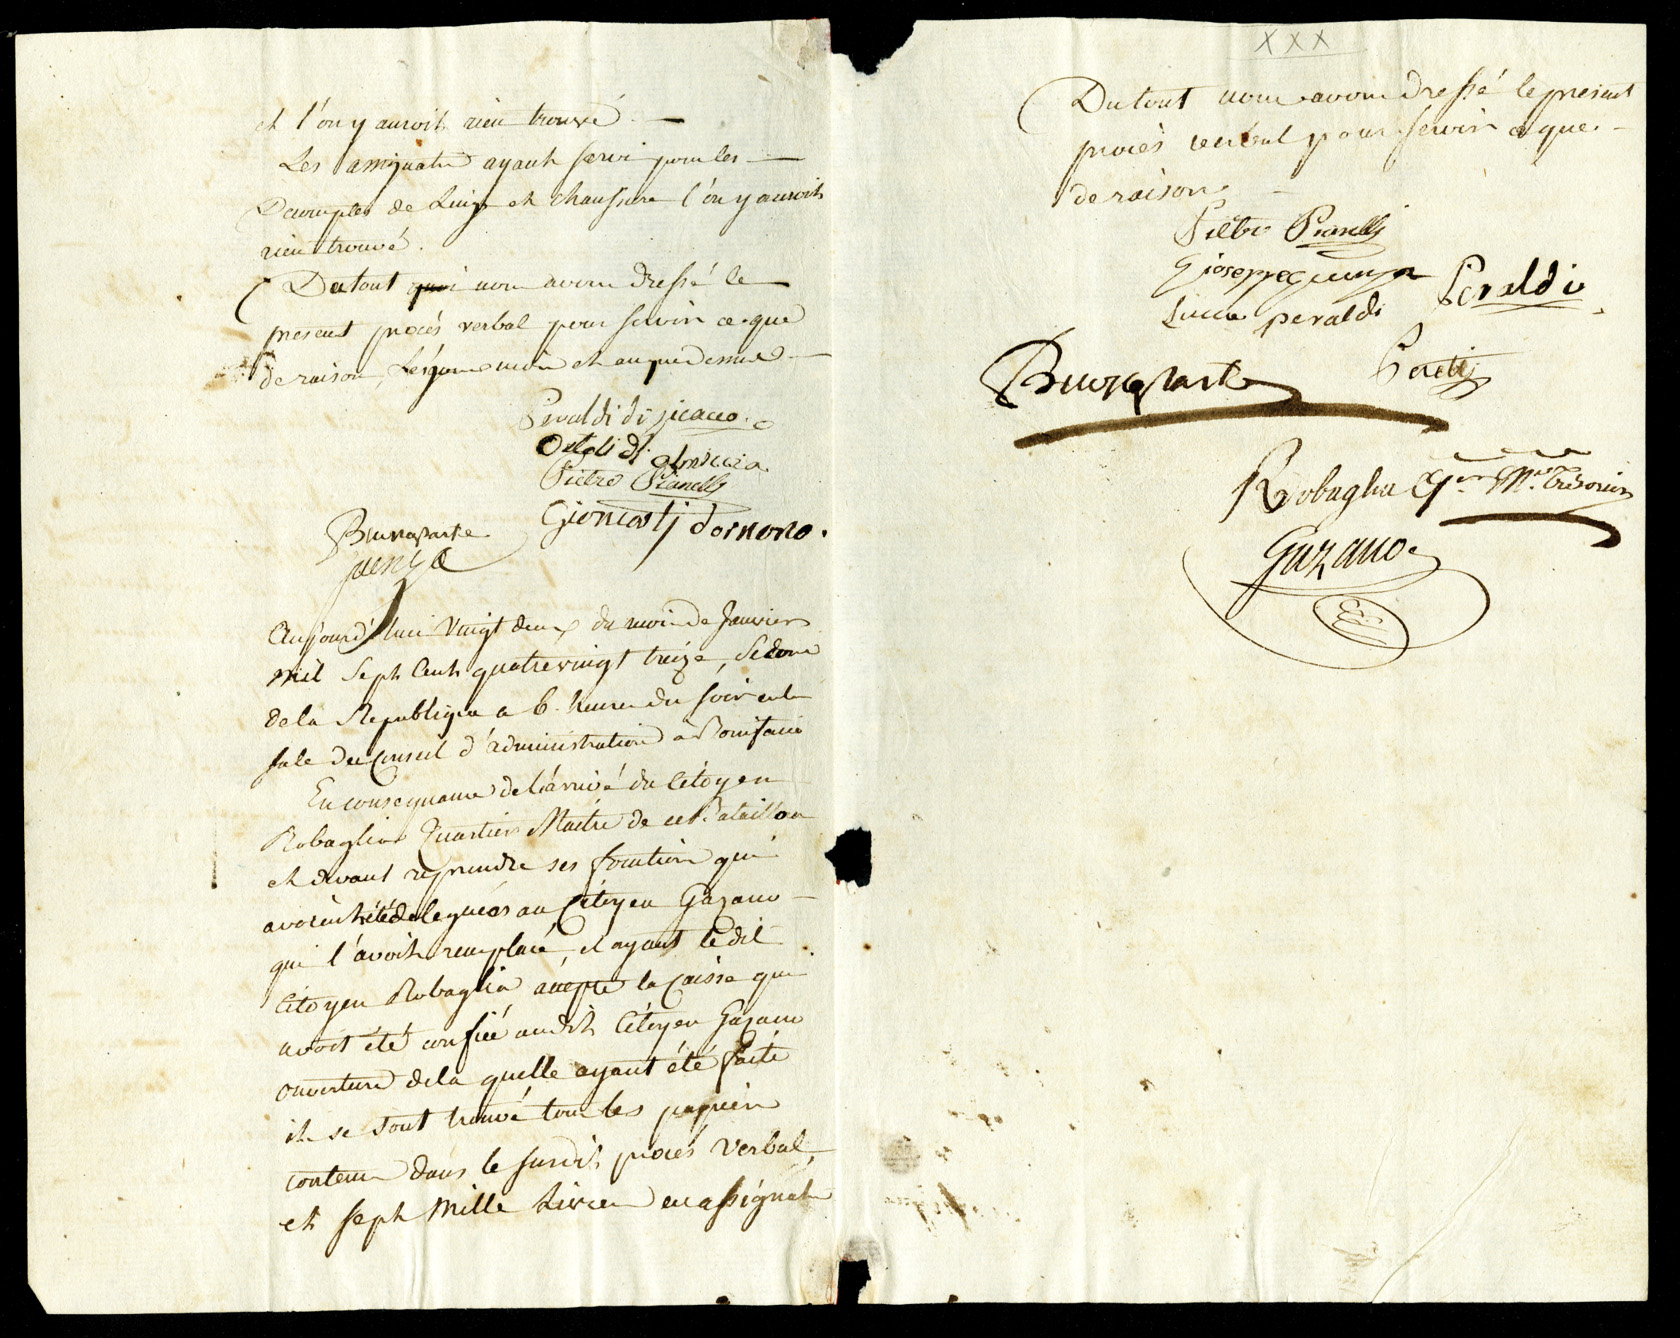 et l'on y auroit rien trouvé. —
Les assignats ayant servi pour les —
Decomptes de Linge et chaussure l'on y auroit
rien trouvé.
Du tout quoi nous avons dressé le —
present procés verbal pour servir ce que
de raison, Les jour mois et an que dessus —
Peraldi di
Ortoli di olmiccia
Pietro Pianelli
d'ornano.
Buonaparte
quenza
Aujourd'hui Vingt deux du mois de Janvier
mil sept Cent quatrevingt treize, Seconde
de la Republique a 6. heures du soir en la
sale du Conseil d'administration a Bonifacio
En consequance de l'arrivé du Citoyen
Robaglia Quartier Maitre de ce Bataillon
et devant reprendre ses fonctions qui
avoient été deleguées au Citoyen Gazano —
qui l'avoit remplacé, et ayant le dit
Citoyen Robaglia accepté la Caisse qui
avoit été confiée audit Citoyen Gazano
ouverture de la quelle ayant été faite
il se sont trouvé tous les papiers
contenus dans le susdit procés verbal,
et sept Mille Livres en assignats
XXX
Du tout nous avons dressé le present
procès verbal pour servir a que —
de raison. —
Pietro Pianelli
Gioseppe quenza
Peraldi
peraldi
Buonaparte
Robaglia Qer. Mre. Trésorier
Gazano